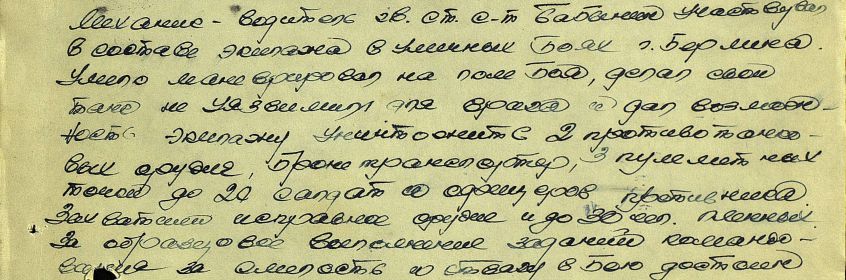 Механик-водитель гв. ст. с-т Бабкин участвуя
в составе экипажа в уличных боях г. Берлина.
Умело маневрировал на поле боя, делал свой
танк не уязвимым для врага и дал возмож-
ность экипажу уничтожить 2 противотанко-
вых орудия, бронетранспортер, 3 пулеметных
точки до 20 солдат и офицеров противника.
Захватили исправное орудие и до 30 чел. пленных.
За образцовое выполнение заданий командо-
вания за смелость и отвагу в бою достоин